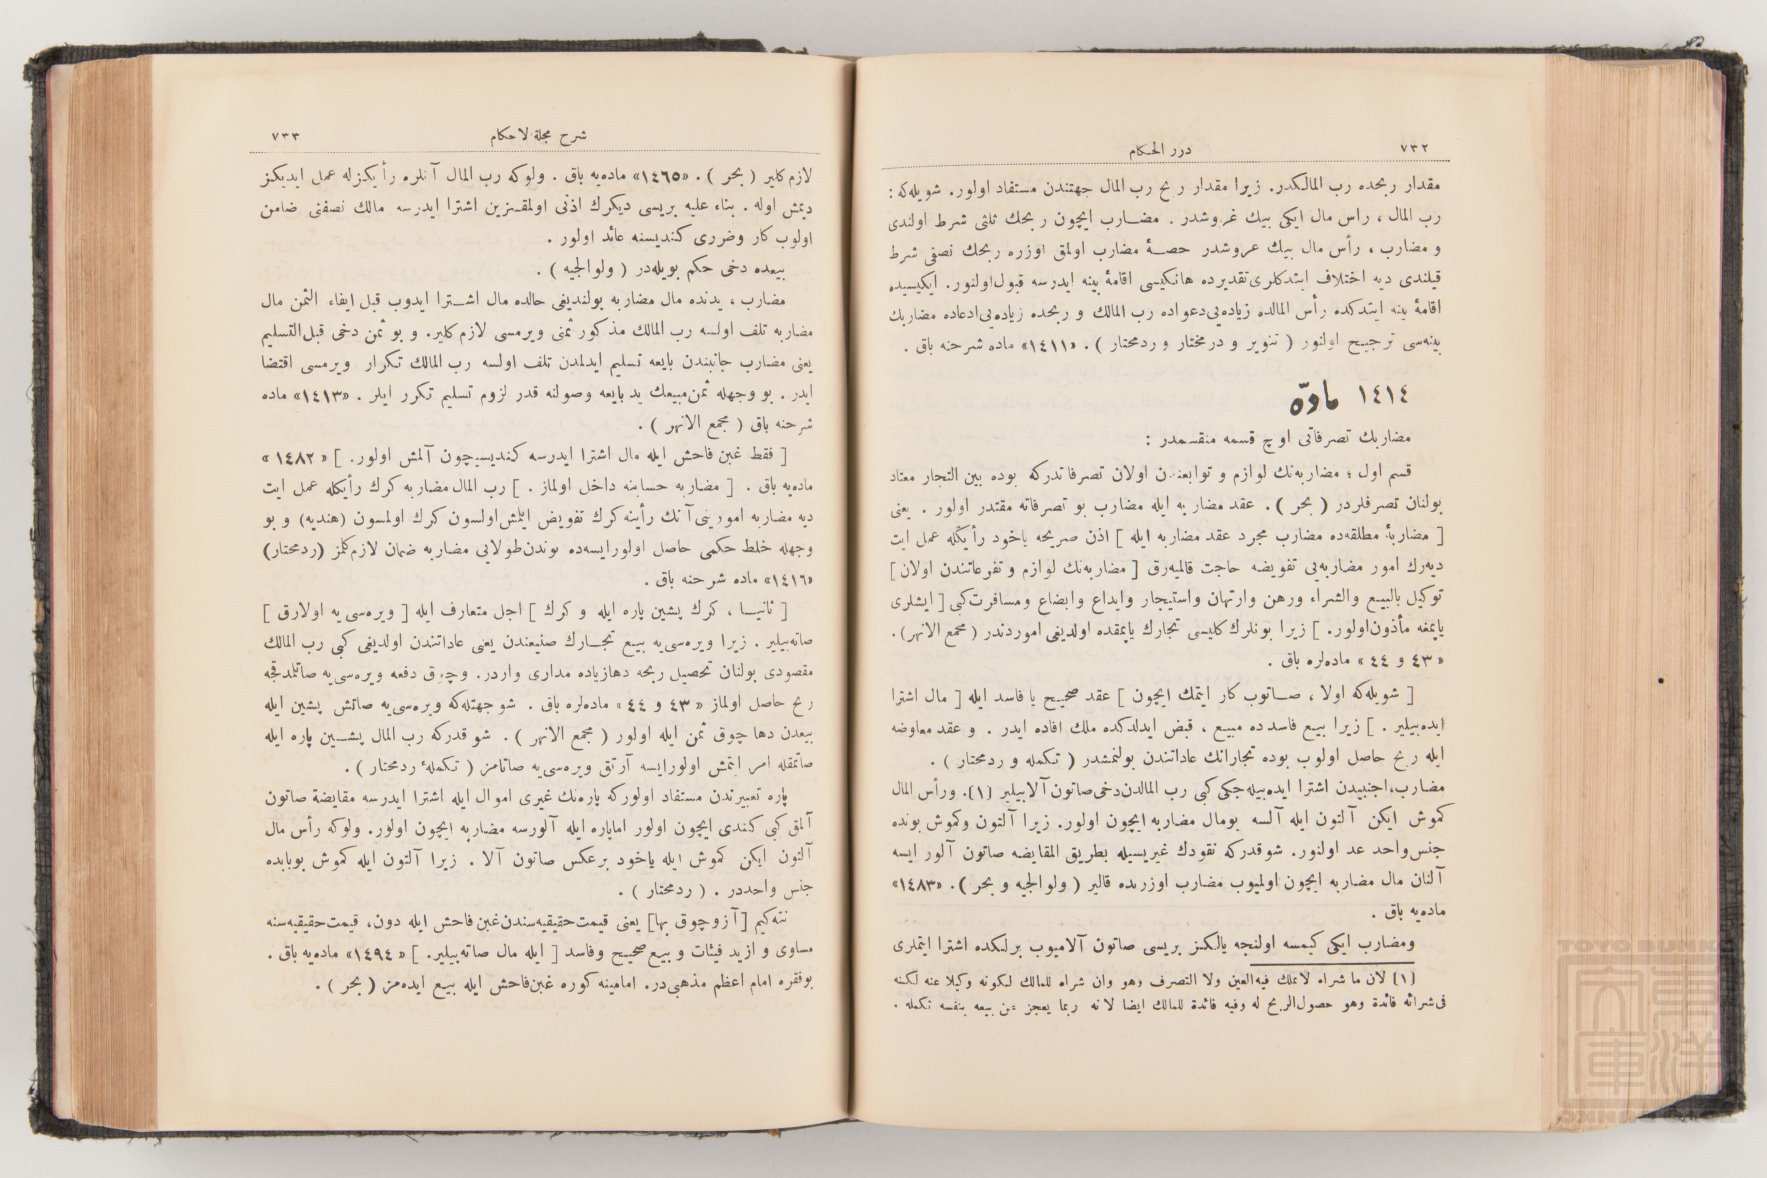 ٧٣٢
درر الحكام
مقدار ربحده رب المالكدر. زيرا مقدار ربح رب المال جهتندن مستفاد اولور. شويله‌كه :
رب المال ، رأس مال ايكى بيك غروشدر . مضارب ايچون ربحك ثلثى شرط اولندى
و مضارب ، رأس مال بيك غروشدر حصۀ مضارب اولمق اوزره ربحك نصفى شرط
قيلندى ديه اختلاف ايتدكلرى تقديرده هانكيسى اقامۀ بينه ايدرسه قبول اولنور. ايكيسيده
اقامۀ بينه ايتدكده رأس المالده زياده‌يى دعواده رب المالك و ربحده زياده‌يى ادعاده مضاربك
بينه‌سى ترجيح اولنور ( تنوير و درمختار و ردمختار ) . «١٤١١» ماده شرحنه باق .
١٤١٤ مادّه
مضاربك تصرفاتى اوچ قسمه منقسمدر :
قسم اول ؛ مضاربه‌نك لوازم و توابعندن اولان تصرفاتدركه بوده بين التجار معتاد
بولنان تصرفلردر ( بحر ) . عقد مضاربه ايله مضارب بو تصرفاته مقتدر اولور . يعنى
[ مضاربۀ مطلقه‌ده مضارب مجرد عقد مضاربه ايله ] اذن صريحه ياخود رأيكله عمل ايت
ديه‌رك امور مضاربه‌يى تفويضه حاجت قالميه‌رق [ مضاربه‌نك لوازم و تفرعاتندن اولان ]
توكيل بالبيع والشراء ورهن وارتهان واستيجار وايداع وابضاع ومسافرت كبى [ ايشلرى
ياپمغه مأذون اولور. ] زيرا بونلرك كليسى تجارك ياپمقده اولديغى اموردندر ( مجمع الانهر ).
« ٤٣ و ٤٤ » ماده‌لره باق .
[ شويله‌كه اولا ، صاتوب كار ايتمك ايچون ] عقد صحيح يا فاسد ايله [ مال اشترا
ايده‌بيلير . ] زيرا بيع فاسدده مبيع ، قبض ايدلدكده ملك افاده ايدر . و عقد معاوضه
ايله ربح حاصل اولوب بوده تجاراتك عاداتندن بولنمشدر ( تكمله و ردمختار ) .
مضارب، اجنبيدن اشترا ايده‌بيله‌جكى كبى رب المالدن دخى صاتون آلابيلير (١). ورأس المال
كموش ايكن آلتون ايله آلسه بومال مضاربه ايچون اولور. زيرا آلتون وكموش بونده
جنس واحد عد اولنور. شوقدركه نقودك غيريسيله بطريق المقايضه صاتون آلور ايسه
آلنان مال مضاربه ايچون اولميوب مضارب اوزرنده قالير ( ولوالجيه و بحر ) . «١٤٨٣»
ماده‌يه باق .
ومضارب ايكى كيمسه اولنجه يالكز بريسى صاتون آلاميوب برلكده اشترا ايتملرى
(١) لان ما شراه لا يملك فيه العين ولا التصرف وهو وان شراه للمالك لكونه وكيلا عنه لكنه
فى شرائه فائدة وهو حصول الربح له وفيه فائدة للمالك ايضا لانه ربما يعجز عن بيعه بنفسه تكمله .
شرح مجلة الاحكام
٧٣٣
لازم كلير ( بحر ) . «١٤٦٥» ماده‌يه باق . ولوكه رب المال آنلره رأيكزله عمل ايديكز
ديمش اوله . بناء عليه بريسى ديكرك اذنى اولمقسزين اشترا ايدرسه مالك نصفنى ضامن
اولوب كار وضررى كنديسنه عائد اولور .
بيعده دخى حكم بويله‌در ( ولوالجيه ) .
مضارب ، يدنده مال مضاربه بولنديغى حالده مال اشترا ايدوب قبل ايفاء الثمن مال
مضاربه تلف اولسه رب المالك مذكور ثمنى ويرمسى لازم كلير. و بو ثمن دخى قبل التسليم
يعنى مضارب جانبندن بايعه تسليم ايدلمدن تلف اولسه رب المالك تكرار ويرمسى اقتضا
ايدر . بو وجهله ثمن مبيعك يد بايعه وصولنه قدر لزوم تسليم تكرر ايلر . «١٤١٣» ماده
شرحنه باق ( مجمع الانهر ) .
[ فقط غبن فاحش ايله مال اشترا ايدرسه كنديسيچون آلمش اولور. ] « ١٤٨٢ »
ماده‌يه باق . [ مضاربه حسابنه داخل اولماز . ] رب المال مضاربه كرك رأيكله عمل ايت
ديه مضاربه امورينى آنك رأينه كرك تفويض ايلمش اولسون كرك اولمسون (هنديه) و بو
وجهله خلط حكمى حاصل اولورايسه‌ده بوندن طولايى مضاربه ضمان لازم كلمز (ردمختار)
«١٤١٦» ماده شرحنه باق .
[ ثانيا ، كرك پشين پاره ايله و كرك ] اجل متعارف ايله [ ويره‌سى‌يه اولارق ]
صاته‌بيلير . زيرا ويره‌سى‌يه بيع تجارك صنيعندن يعنى عاداتندن اولديغى كبى رب المالك
مقصودى بولنان تحصيل ربحه دها زياده مدارى واردر. وچوق دفعه ويره‌سى‌يه صاتلمدقجه
ربح حاصل اولماز « ٤٣ و ٤٤ » ماده‌لره باق . شو جهتله‌كه ويره‌سى‌يه صاتش پشين ايله
بيعدن دها چوق ثمن ايله اولور ( مجمع الانهر ) . شو قدركه رب المال پشين پاره ايله
صاتمقله امر ايتمش اولورايسه آرتق ويره‌سى‌يه صاتامز ( تكملۀ ردمختار ) .
پاره تعبيرندن مستفاد اولوركه پاره‌نك غيرى اموال ايله اشترا ايدرسه مقايضة صاتون
آلمق كبى كندى ايچون اولور اما پاره ايله آلورسه مضاربه ايچون اولور. ولوكه رأس مال
آلتون ايكن كموش ايله ياخود برعكس صاتون آلا . زيرا آلتون ايله كموش بوبابده
جنس واحددر . ( ردمختار ) .
نته‌كيم [آز و چوق بها] يعنى قيمت حقيقيه‌سندن غبن فاحش ايله دون، قيمت حقيقيه‌سنه
مساوى و ازيد فيئات و بيع صحيح وفاسد [ ايله مال صاته‌بيلير. ] «١٤٩٤» ماده‌يه باق .
بوفقره امام اعظم مذهبى‌در. امامينه كوره غبن فاحش ايله بيع ايده‌مز ( بحر ) .